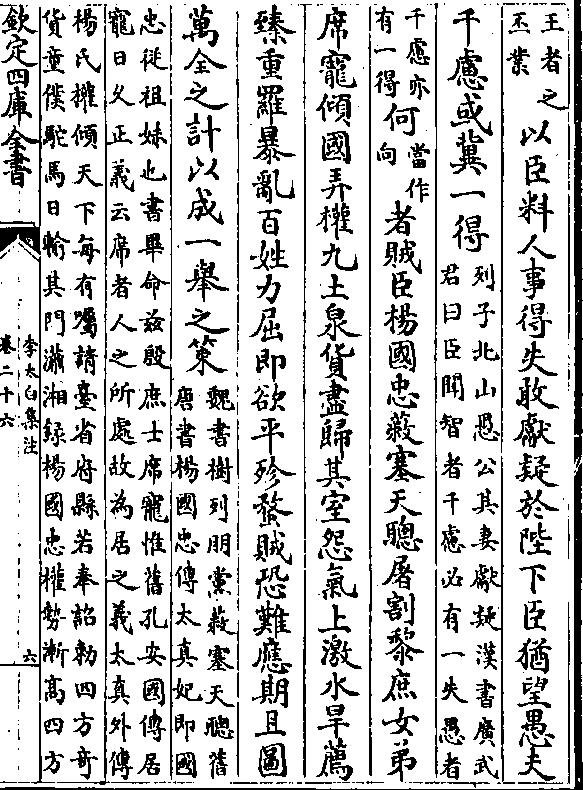 王者之
丕業
以臣料人事得失敢獻疑於陛下臣猶望愚夫
千慮或冀一得
列子北山愚公其妻獻疑漢書廣武
君曰臣聞智者千慮必有一失愚者
千慮亦
有一得
何
當作
向
者賊臣楊國忠蔽塞天聰屠割黎庶女弟
席寵傾國弄權九土泉貨盡歸其室怨氣上激水旱薦
臻重羅暴亂百姓力屈即欲平殄蝥賊恐難應期且圖
萬全之計以成一舉之策
魏書樹列朋黨蔽塞天聰舊
唐書楊國忠傳太真妃即國
忠從祖妹也書畢命茲殷庶士席寵惟舊孔安國傳居
寵日久正義云席者人之所處故為居之義太真外傳
楊氏權傾天下每有囑請臺省府縣若奉詔勅四方奇
貨童僕駝馬日輸其門瀟湘録楊國忠權勢漸高四方
欽定四庫全書
李太白集注
卷二十六
六